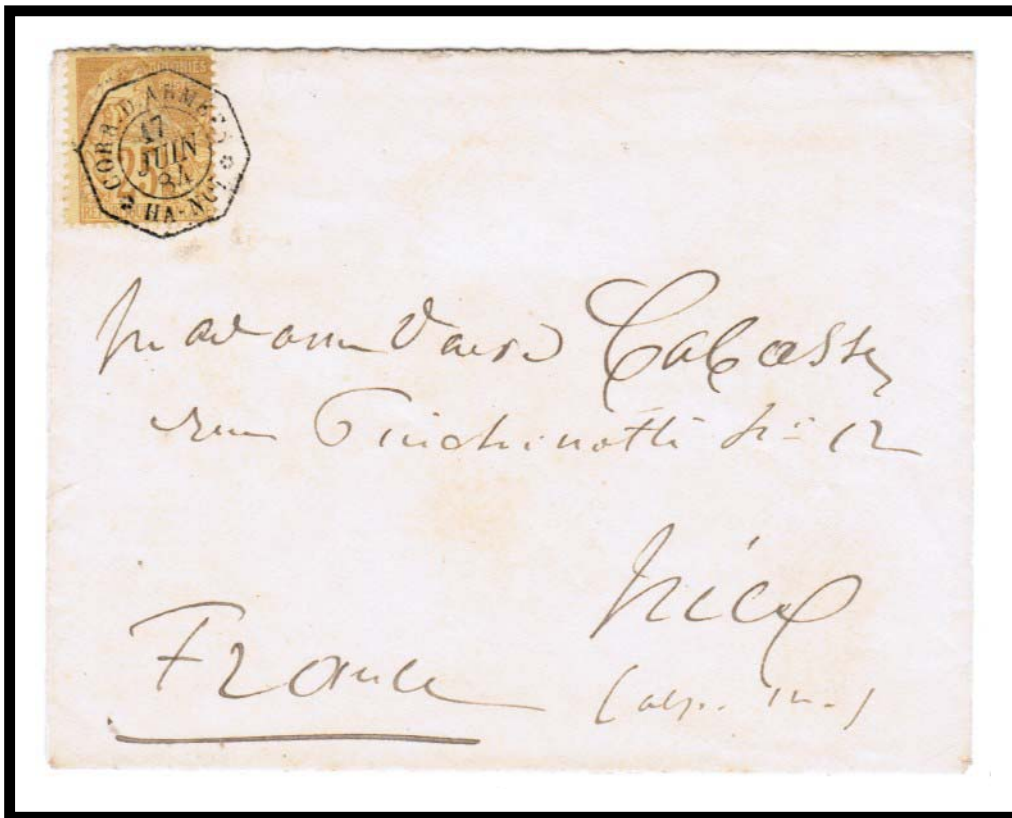 COLONIES
25
CORR. D. ARMEES
17
JUIN
84
HA-NOI
Madame Cabasse
rue No 12
Nice
France
(alp. m.)